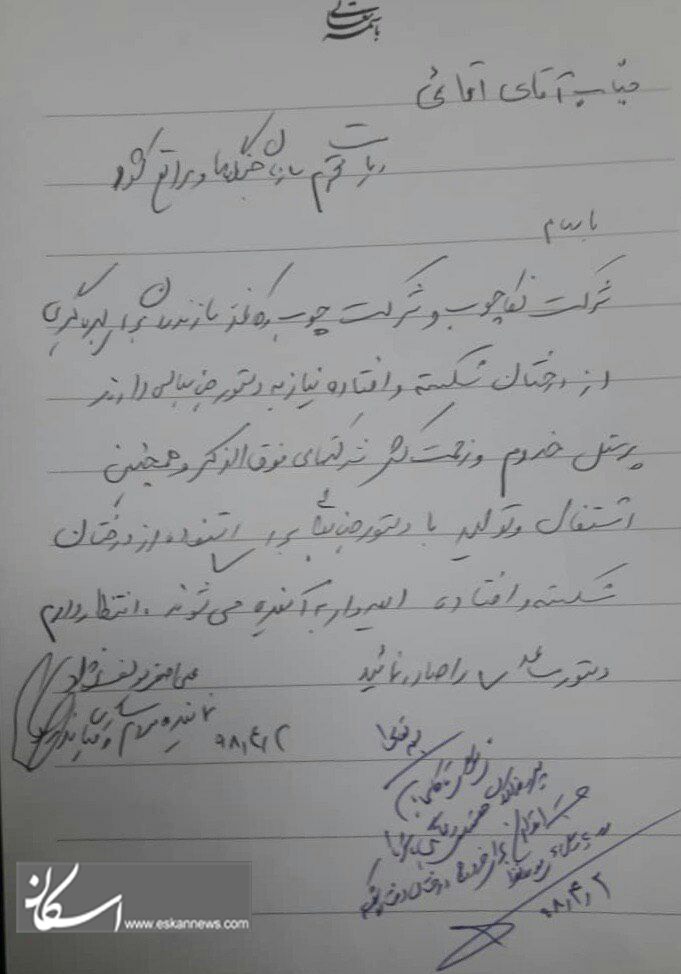 باسمه تعالی
جناب آقای آقائی
ریاست محترم سازمان جنگلها و مراتع کشور
با سلام
شرکت نکاچوب و شرکت چوب و کاغذ مازندران برای بهره گیری
از درختان شکسته و افتاده نیاز به دستور جنابعالی دارند
پرسنل خدوم و زحمت کش شرکتهای فوق الذکر و همچنین
اشتغال و تولید با دستور جنابعالی برای استفاده از درختان
شکسته و افتاده امیدوار به آینده می شوند. انتظار دارم
دستور مساعدی را صادر نمائید
علی اصغر یوسف نژاد
نماینده مردم ساری و میاندورود
۹۸,۴,۲
۹۸,۴,۲
اسکان
www.eskannews.com